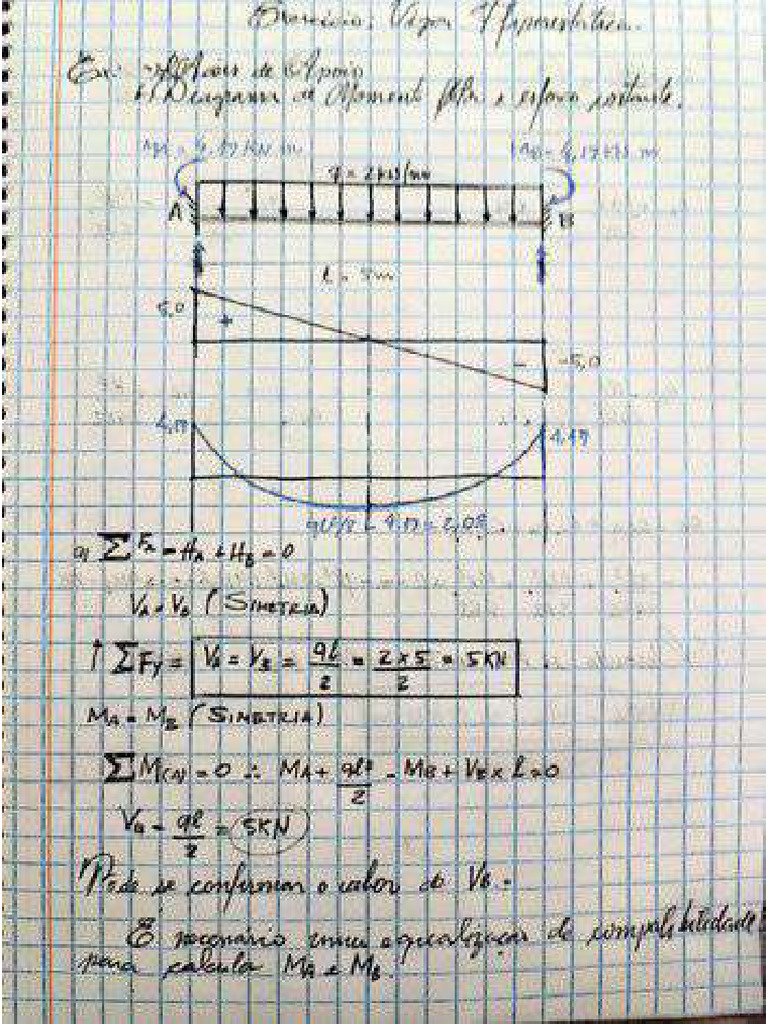 Exercício: Vigas Hiperestática.
Ex: Ações de Apoio
b) Diagrama de Momento e esforo cortante.
MA = 4,17 KN m
MB = 4,17 KN m
q = 2 KN/m
A
B
l = 5m
5,0
+
-
-5,0
4,17
4,17
ql²/8 - 4.17 = 2,08
a) ∑ Fx = HA + HB = 0
VA = VB (SIMETRIA)
↑ ∑ Fy = VA = VB = ql/2 = 2x5/2 = 5KN
MA = MB (SIMETRIA)
∑ M(A) = 0 ∴ MA + ql²/2 - MB + VB x l = 0
VB = ql/2 = 5KN
Pode se confirmar o valor do VB.
É necessário uma equalização de compatibilidade
para calcula MA e MB.